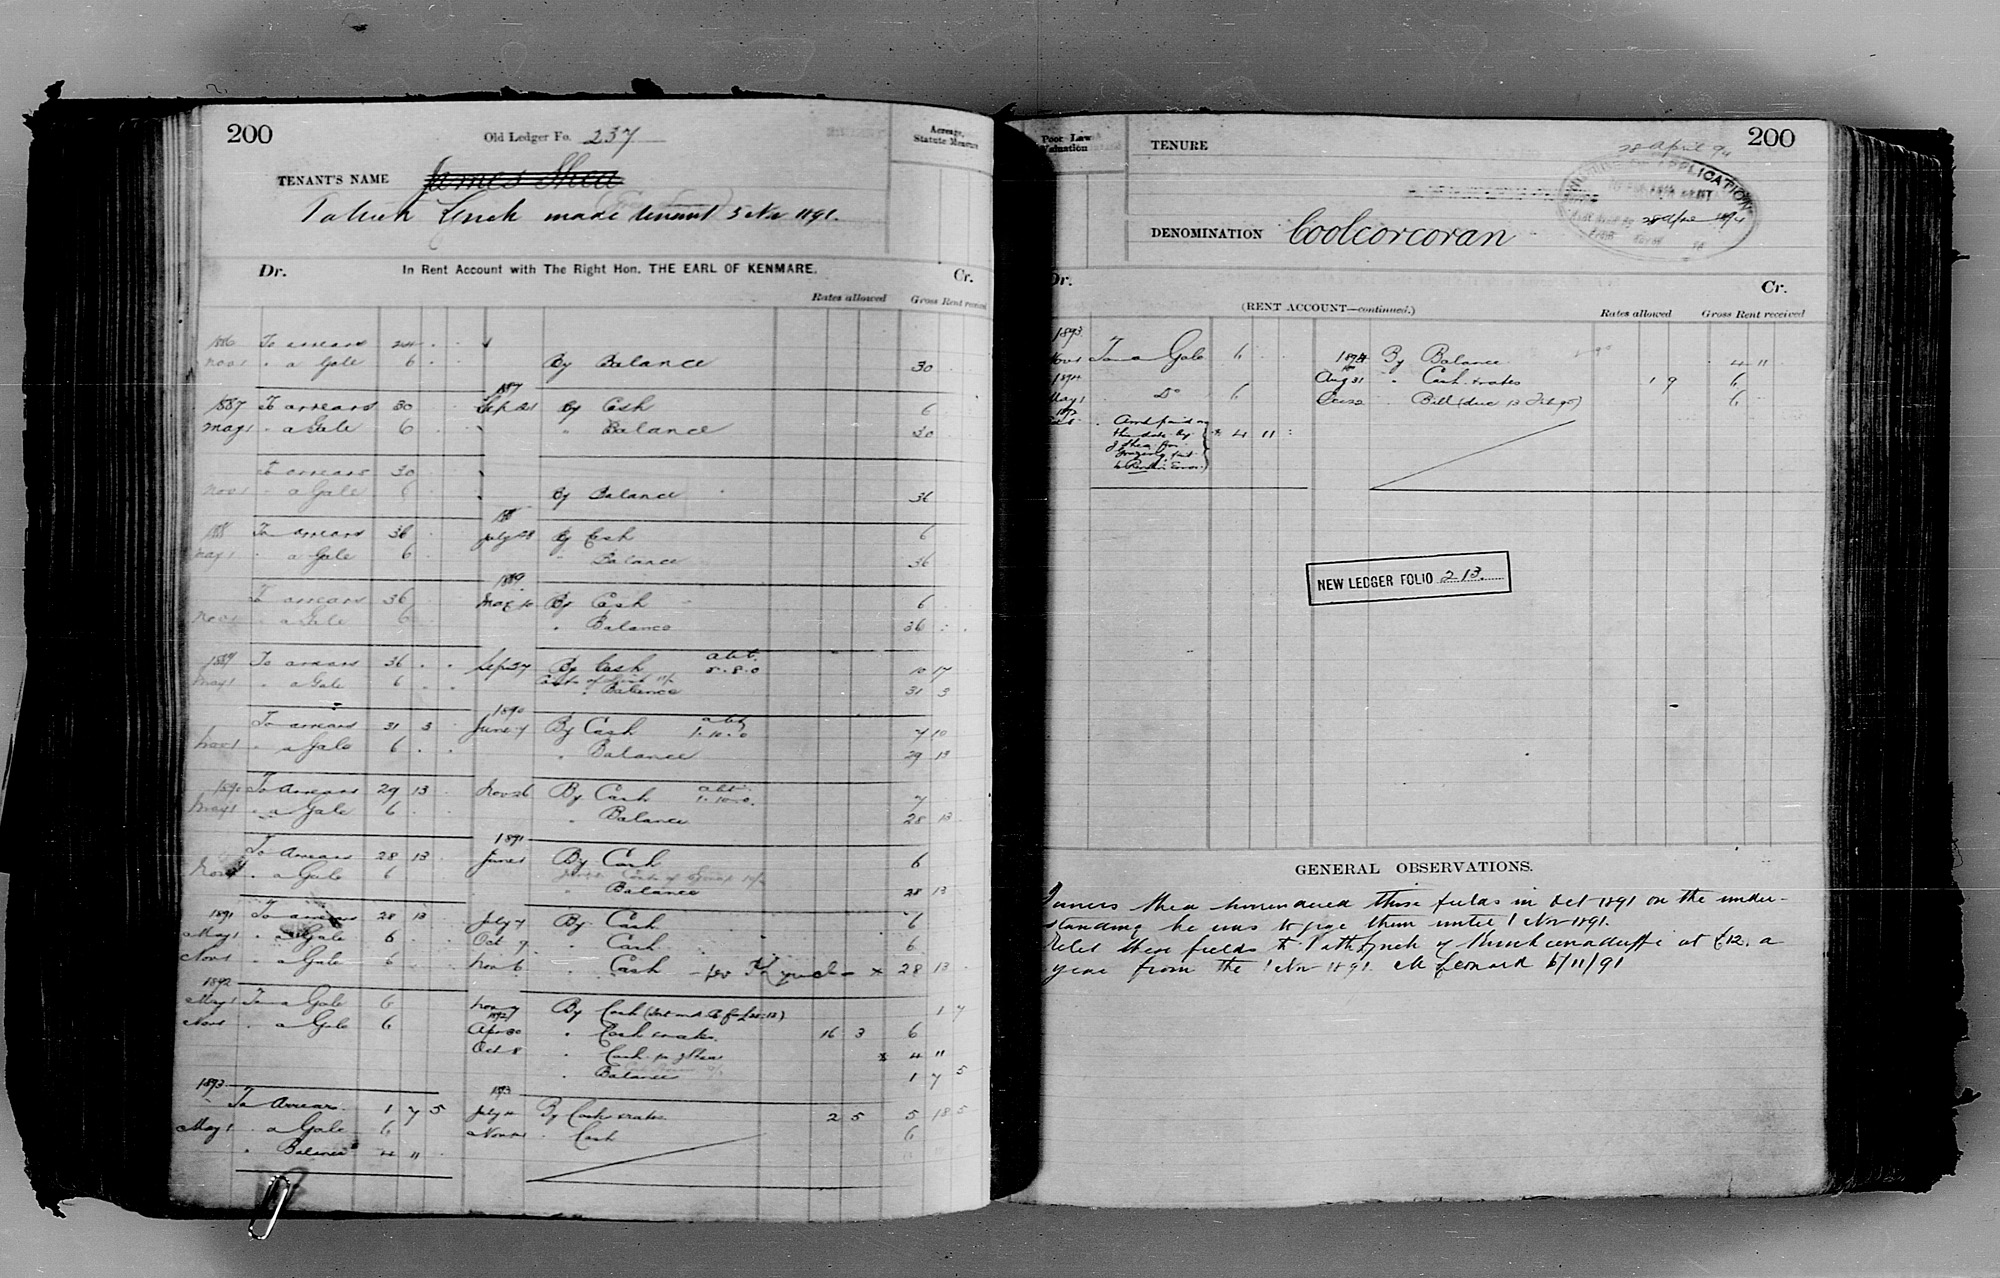 200
Old Ledger Fo. 237
Acreage, Statute Measure
TENANT'S NAME James Shea
Patrick Lynch made tenant 5 Nov 1891.
Dr. In Rent Account with The Right Hon. THE EARL OF KENMARE. Cr.
Rates allowed Gross Rent received
1886 To arrears 24
Nov 1 " a Gale 6 By Balance 30
1887
1887 To arrears 30 Sep 21 By Cash 6
May 1 " a Gale 6 " Balance 30
To arrears 30
Nov 1 " a Gale 6 By Balance 36
188
188 To arrears 36 July 28 By Cash 6
May 1 " a Gale 6 " Balance 36
1889
To arrears 36 May 10 By Cash 6
Nov 1 " a Gale 6 " Balance 36
1889 To arrears 36 Sep 27 By Cash abt. 5.8.0 10 17
May 1 " a Gale 6 " Balance 31 3
1890
To arrears 31 3 June 7 By Cash abt 1.10.0 7 10
Nov 1 " a Gale 6 " Balance 29 13
1890 To Arrears 29 13 Nov 26 By Cash abt. 1.10.0 7
May 1 " a Gale 6 " Balance 28 13
1891
To Arrears 28 13 June 1 By Cash 6
Nov 1 " a Gale 6 " Balance 28 13
1891 To arrears 28 13 July 7 By Cash 6
May 1 " a Gale 6 Oct 7 " Cash 6
Nov 1 " a Gale 6 Nov 6 " Cash — per P Lynch — x 28 13
1892
May 1 To a Gale 6 Nov 7 By Cash 1 7
Nov 1 " a Gale 6 1892 Apr 30 " Cash & rates 16 3 6
Oct 8 " Cash pr J Shea x 4 11
" Balance 1 7 5
1893 1893
To Arrears 1 7 5 July 4 By Cash & rates 2 5 5 18 5
May 1 " a Gale 6 Nov " Cash 6
" Balance 4 11
Poor Law Valuation
TENURE
200
28 April 94
APPLICATION
28 April 1894
DENOMINATION Coolcorcoran
Dr. Cr.
(RENT ACCOUNT—continued.)
Rates allowed Gross Rent received
1893
Nov 1 To a Gale 6 1894 By Balance 4 11
1894 Aug 31 " Cash & rates 1 9 6
May 1 Do 6 Dec 22 " Bill (due 13 Feb 95) 6
1892
Oct " Amt paid on
this date by x 4 11
J Shea for
Grazing
NEW LEDGER FOLIO 213
GENERAL OBSERVATIONS.
James Shea surrendered these fields in Oct 1891 on the under-
standing he was to graze them until 1 Nov 1891.
Relet these fields to Patk Lynch of at £12. a
year from the 1 Nov 1891. M Leonard 6/11/91